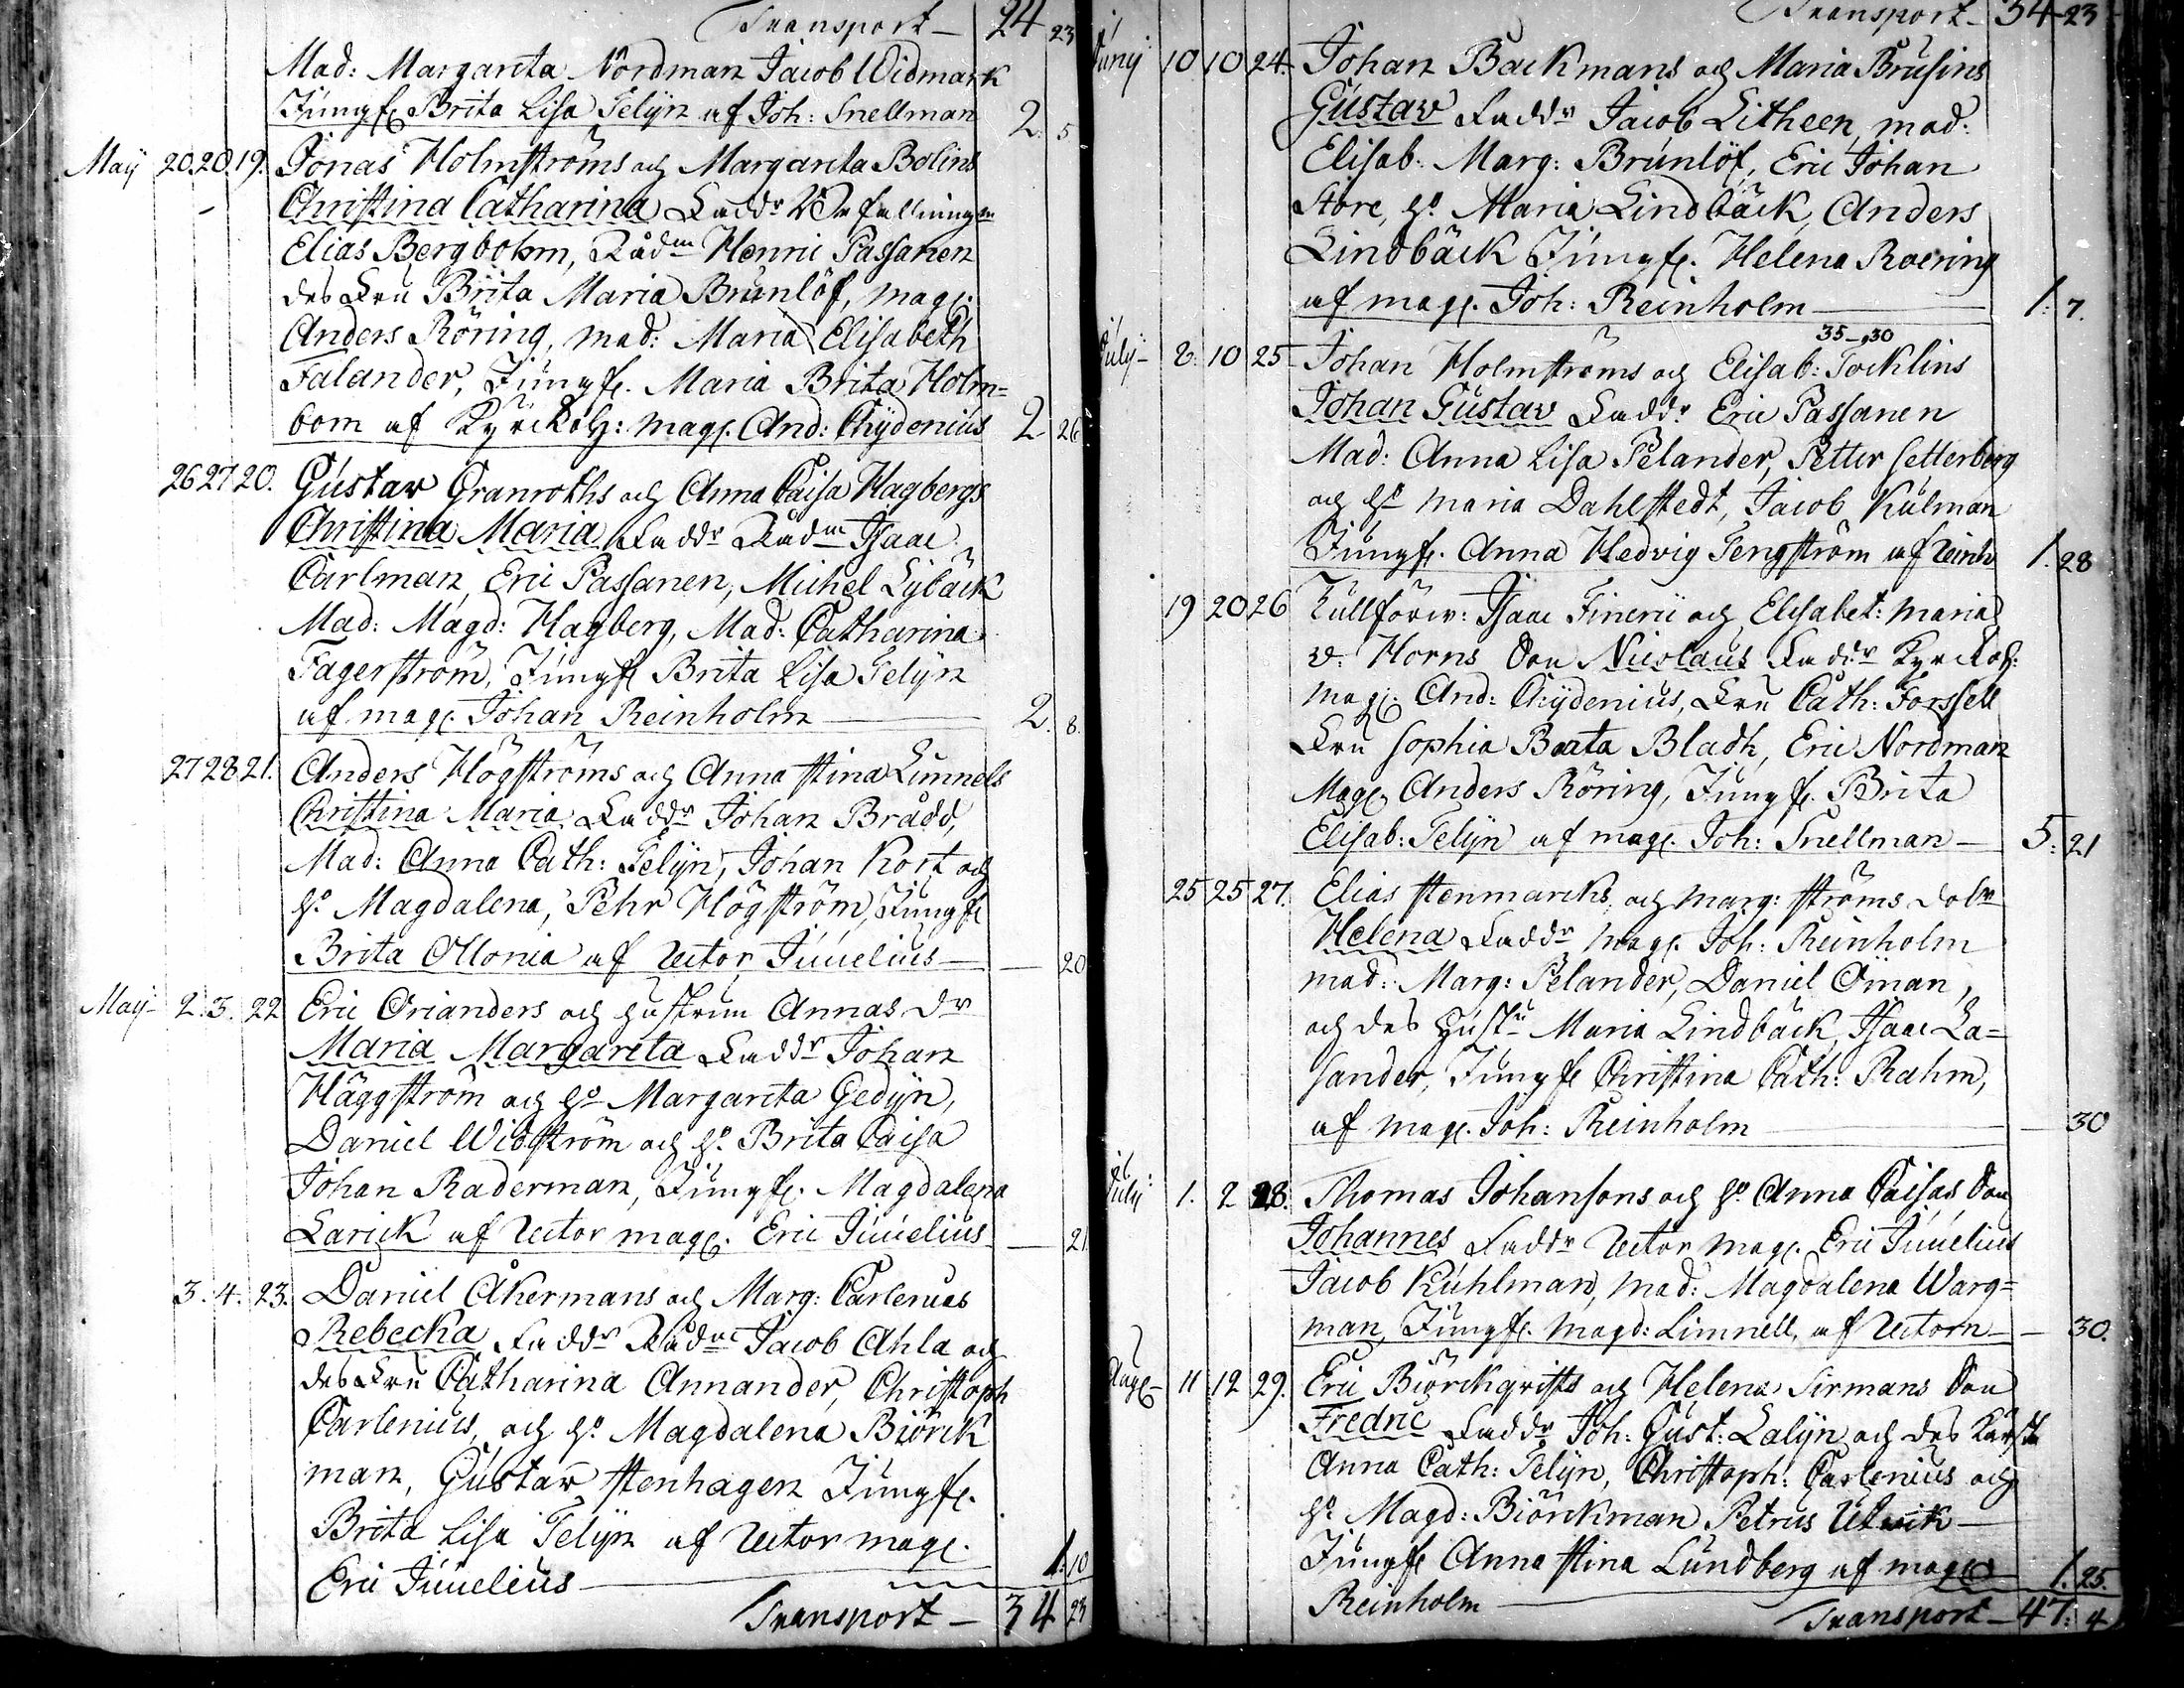 Transport — 24 23
Mad: Margareta Nordman Jacob Widmark
Jungf. Brita Lisa Telijn af Joh: Snellman 2. 5
Maij 20. 20. 19. Jonas Holmströms och Margareta Bolins
Christina Catharina Faddr
Elias Bergbohm, Rådm Henric Passanen
des Fru Brita Maria Brunlöf, mag.
Anders Röring, mad: Maria Elisabeth
Falander, Jungf. Maria Brita Holm=
bom af Kyrckoh: mag. And: Chydenius 2 26
26 27 20. Gustav Granroths och Anna Caisa Hagbergs
Christina Maria Faddr Rådm Isaac
Carlman, Eric Passanen, Michel Lybäck
Mad: Magd: Hagberg, Mad: Catharina
Fagerström, Jungf Brita Lisa Telijn
af mag. Johan Reinholm — 2. 8.
27 28 21. Anders Högströms och Anna Stina Limnels
Christina Maria Faddr Johan Brådd,
Mad: Anna Cath: Telijn, Johan Kort och
h: Magdalena, Pehr Högström, Jungf
Brita Ollonia af Rector Juvelius — — 20
Maij — 2. 3. 22 Eric Orianders och hustrun Annas dr
Maria Margareta Faddr Johan
Häggström och h: Margareta Gedijn,
Daniel Widström och h: Brita Caisa
Johan Raderman, Jungf. Magdalena
Larick af Rector mag. Eric Juvelius — 21
3. 4. 23. Daniel Åkermans och Marg: Carlenias
Rebecka Faddr Rådm Jacob Ahla och
des Fru Catharina Annander, Christoph
Carlenius, och h: Magdalena Biörck
man, Gustav Stenhagen Jungf.
Brita Lisa Telijn af Rector mag.
Eric Juvelius — 1. 10
Transport — 34 23
Transport — 34 23
Junij 10 10 24. Johan Backmans och Maria Brusins
Gustav Faddr Jacob Litheen, mad:
Elisab: Marg: Brunlöf, Eric Johan
Store, h: Maria Lindbäck, Anders
Lindbäck Jungf. Helena Roering
af mag. Joh: Reinholm — 1. 7.
35 — 30
July — 8. 10 25 Johan Holmströms och Elisab: Tocklins
Johan Gustav Faddr Eric Passanen
Mad: Anna Lisa Pelander, Petter Setterberg
och h: Maria Dahlstedt, Jacob Kulman
Jungf. Anna Hedvig Tengström af Reinh 1. 28
19 20 26 Tullförw: Isaac Finerii och Elisabet: Maria
v: Horns Son Nicolaus Faddr Kyrckoh:
Mag. And: Chydenius, Fru Cath: Forssell
Fru Sophia Beata Bladh, Eric Nordman
Mag. Anders Röring, Jungf. Brita
Elisab: Telijn af mag. Joh: Snellman — 5: 21
25 25 27. Elias Stenmarcks, och Marg: Ströms dotr
Helena Faddr mag. Joh: Reinholm
mad: Marg: Pelander, Daniel Öman,
och des Hustru Maria Lindbäck, Isaac La=
sander, Jungf Christina Cath: Rahm,
af mag. Joh: Reinholm — 30
July 1. 2 28. Thomas Johansons och h: Anna Caisas Son
Johannes Faddr Rector Mag. Eric Juvelius
Jacob Kuhlman, mad: Magdalena Warg=
man, Jungf. Magd: Limnell, af Rectorn — 30.
Aug — 11 12 29. Eric Biörckqvists och Helena Sirmans Son
Fredric Faddr Joh: Gust: Lalijn och des
Anna Cath: Telijn, Christoph: Carlenius och
h: Magd: Biörckman Petrus
Jungf Anna Stina Lundberg af mag
Reinholm — 1. 25.
Transport — 47. 4